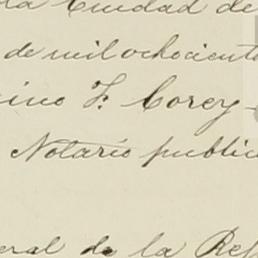 la Ciudad de
de mil ochocient
ino F. Corey
Notario public
eral de la Rep